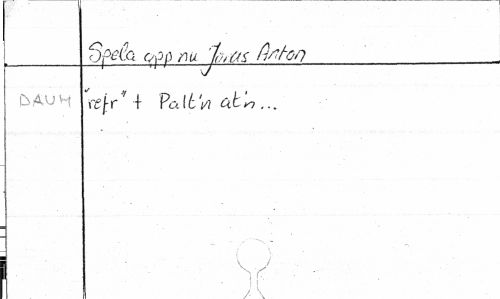 Spela opp nu Jonas Anton
DAUM "refr" + Palt'n åt'n...